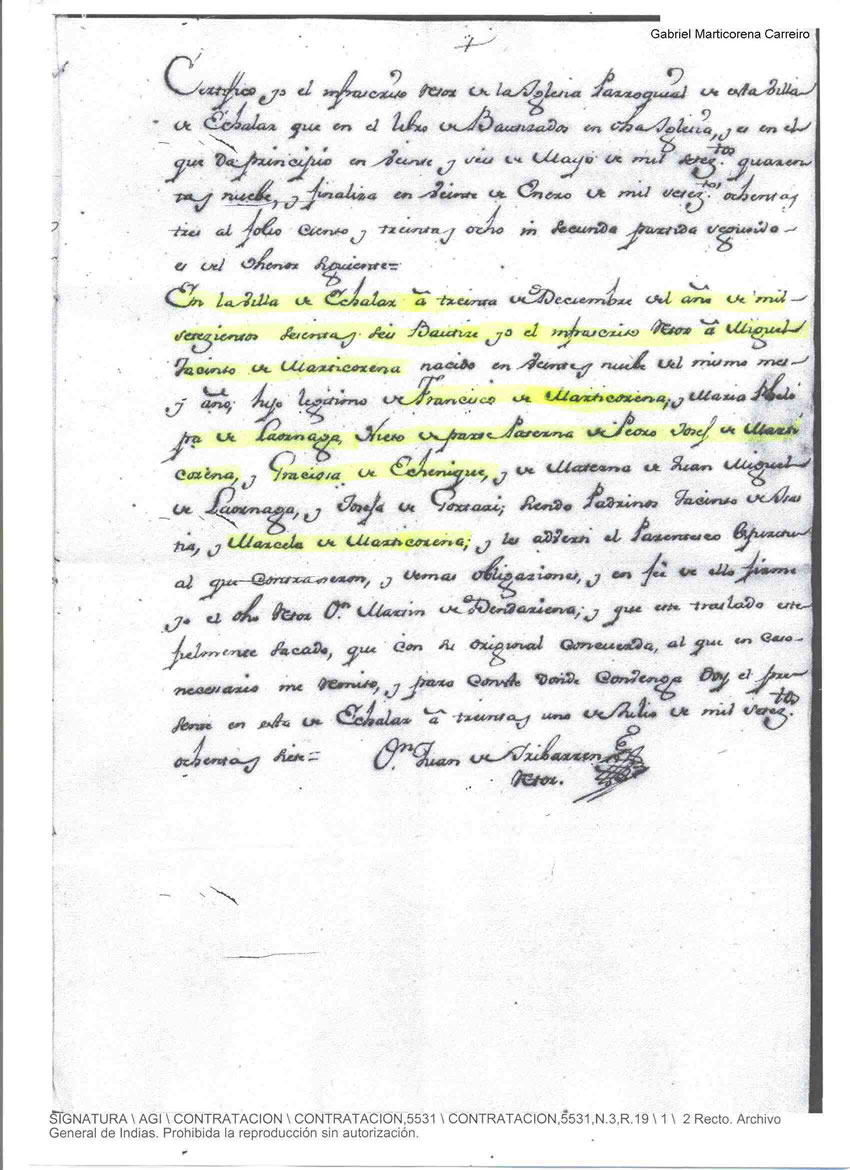 Gabriel Marticorena Carreiro
Certifico yo el infrascrito Retor de la Iglesia Parroquial de esta Villa
de Echalar que en el libro de Bautizados en dha Iglesia, y es en el
que da principio en veinte y seis de Mayo de mil setez.tos quaren
ta y nuebe, y finaliza en veinte de Enero de mil setez.tos ochenta y
tres al folio ciento y treinta y ocho in secunda partida
es del thenor siguiente=
En la Villa de Echalar â treinta de Deciembre del año de mil
setezientos sesenta y seis Bautize yo el infrascrito Retor â Miguel
Jacinto de Marticorena nacido en veinte y nuebe del mismo mes
y año; hijo legitimo de Francisco de Marticorena, y Maria Pheli
pa de Laornaga, Nieto de parte Paterna de Pedro Josef de Marti
corena, y Graciosa de Echenique, y de Materna de Juan Miguel
de Laornaga, y Josefa de Gortari; siendo Padrinos Jacinto de
y Marcela de Marticorena; y les adverti el Parentesco Spiritu
al que Contraxeron, y demas obligaziones, y en feé de ello firme
yo el dho Retor Dn Martin de Dendariena; y que este traslado este
pelmente sacado, que con su original concuerda, al que en caso
necesario me remito, y para conste donde convenga Doy el pre
sente en esta de Echalar â treinta y uno de Julio de mil setez.tos
ochenta y siete=
Dn Juan de Iribarren
Retor.
SIGNATURA \ AGI \ CONTRATACION \ CONTRATACION,5531 \ CONTRATACION,5531,N.3,R.19 \ 1 \ 2 Recto. Archivo
General de Indias. Prohibida la reproducción sin autorización.